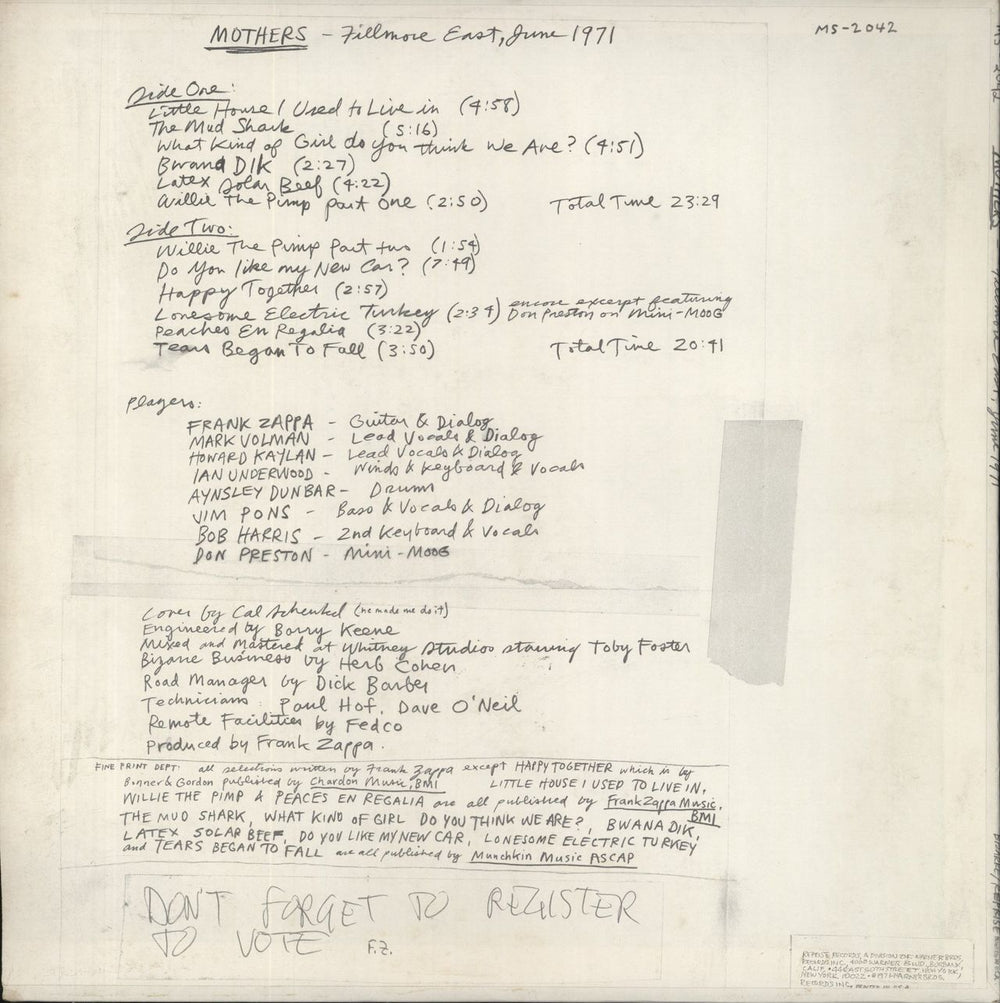 MOTHERS - Fillmore East, June 1971
MS-2042
Side One:
Little House I Used to Live in (4:58)
The Mud Shark (5:16)
What Kind of Girl do you think We Are? (4:51)
Bwana DIK (2:27)
Latex Solar Beef (4:22)
Willie The Pimp part One (2:50) Total Time 23:29
Side Two:
Willie The Pimp Part two (1:54)
Do You like my New Car? (7:49)
Happy Together (2:57)
Lonesome Electric Turkey (2:34) encore excerpt featuring
Don Preston on Mini-MOOG
Peaches En Regalia (3:22)
Tears Began To Fall (3:50) Total Time 20:41
Players:
FRANK ZAPPA - Guitar & Dialog
MARK VOLMAN - Lead Vocals & Dialog
HOWARD KAYLAN - Lead Vocals & Dialog
IAN UNDERWOOD - Winds & Keyboard & Vocals
AYNSLEY DUNBAR - Drums
JIM PONS - Bass & Vocals & Dialog
BOB HARRIS - 2nd Keyboard & Vocals
DON PRESTON - Mini-MOOG
Cover by Cal Schenkel (he made me do it)
Engineered by Barry Keene
Mixed and Mastered at Whitney Studios starring Toby Foster
Bizarre Business by Herb Cohen
Road Manager by Dick Barber
Technicians: Paul Hof, Dave O'Neil
Remote Facilities by Fedco
Produced by Frank Zappa.
FINE PRINT DEPT: all selections written by Frank Zappa except HAPPY TOGETHER which is by
Bonner & Gordon published by Chardon Music, BMI LITTLE HOUSE I USED TO LIVE IN,
WILLIE THE PIMP & PEACES EN REGALIA are all published by Frank Zappa Music,
BMI
THE MUD SHARK, WHAT KIND OF GIRL DO YOU THINK WE ARE?, BWANA DIK,
LATEX SOLAR BEEF, DO YOU LIKE MY NEW CAR, LONESOME ELECTRIC TURKEY
and TEARS BEGAN TO FALL are all published by Munchkin Music ASCAP
DON'T FORGET TO REGISTER
TO VOTE F.Z.
REPRISE RECORDS, A DIVISION OF WARNER BROS.
RECORDS INC., 4000 WARNER BLVD., BURBANK,
CALIF. • 44 EAST 50TH STREET, NEW YORK,
NEW YORK 10022 • ©1971 WARNER BROS.
RECORDS INC. PRINTED IN U.S.A.